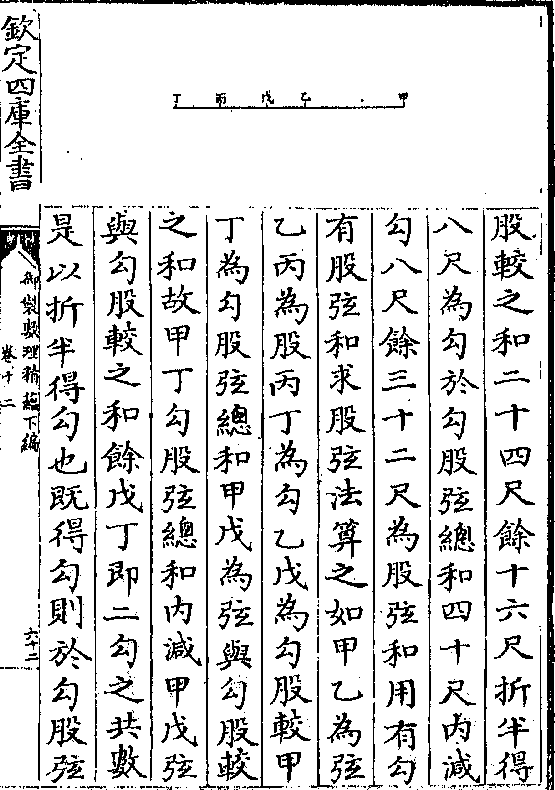 丁 丙 戊 乙 甲
股較之和二十四尺餘十六尺折半得
八尺為勾於勾股弦總和四十尺內減
勾八尺餘三十二尺為股弦和用有勾
有股弦和求股弦法算之如甲乙為弦
乙丙為股丙丁為勾乙戊為勾股較甲
丁為勾股弦總和甲戊為弦與勾股較
之和故甲丁勾股弦總和內減甲戊弦
與勾股較之和餘戊丁即二勾之共數
是以折半得勾也既得勾則於勾股弦
欽定四庫全書
御製數理精蘊下編
卷十二
六十二